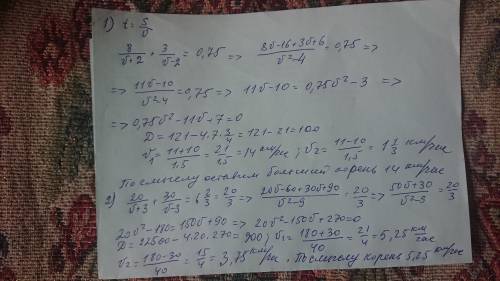 1) t = S/v
8/(v+2) + 3/(v-2) = 0,75 => (8v-16+3v+6)/(v²-4) = 0,75 =>
=> (11v-10)/(v²-4) = 0,75 => 11v-10 = 0,75v²-3 =>
=> 0,75v²-11v+7=0
D = 121-4·7·3/4 = 121-21=100
v₁ = (11+10)/1.5 = 21/1,5 = 14 км/час; v₂ = (11-10)/1,5 = 1 1/3 км/час
По смыслу оставим больший корень 14 км/час
2) 20/(v+3) + 30/(v-3) = 6 2/3 = 20/3 => (20v-60+30v+90)/(v²-9) = 20/3 => (50v+30)/(v²-9) = 20/3
20v²-180=150v+90 => 20v²-150v+270=0
D = 22500-4·20·270=900; v₁ = (180+30)/40 = 21/4 = 5,25 км/час
v₂ = (180-30)/40 = 15/4 = 3,75 км/час. По смыслу корень 5,25 км/час